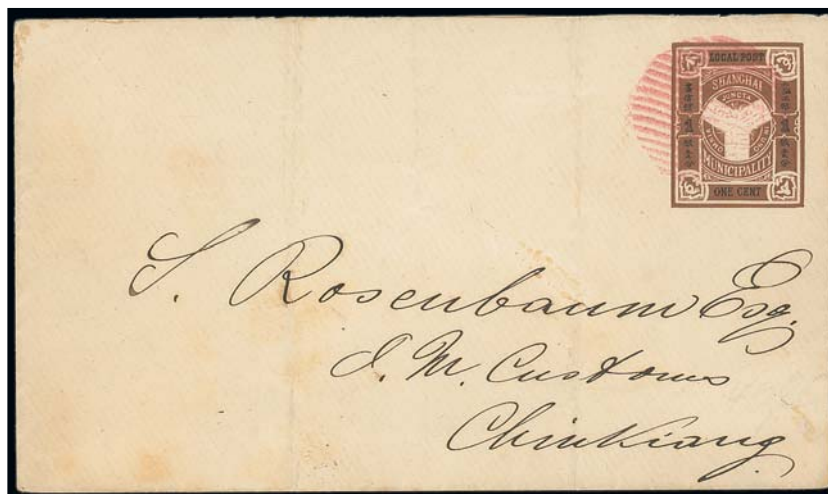 LOCAL POST
SHANGHAI
JUNCTA
MUNICIPALITY
ONE CENT
S. Rosenbaum Esq.
I. M. Customs
Chinkiang